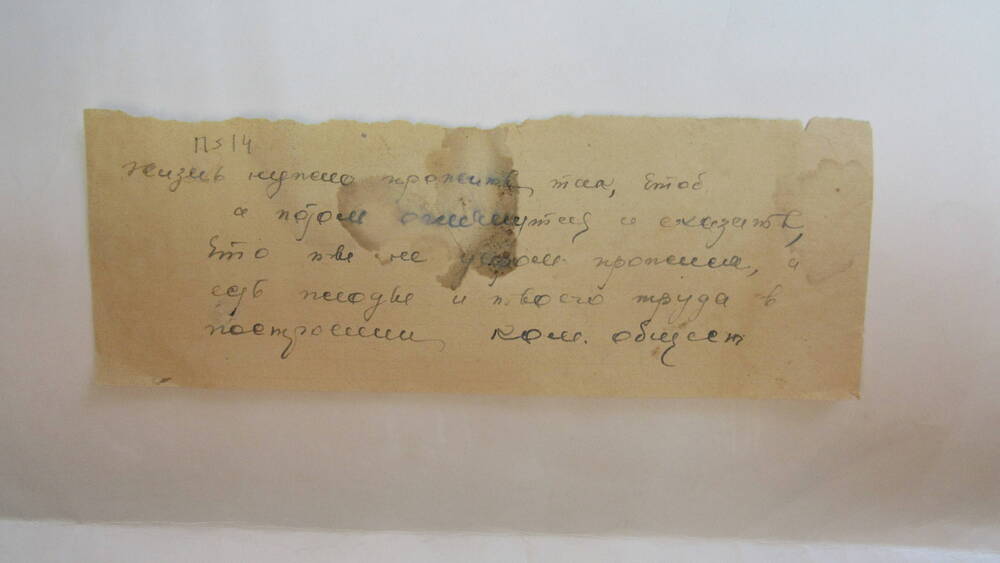 П514
жизнь нужно прожить так, чтоб
а потом оглянутся и сказать,
что ты не даром прожил, и
есть плоды и твоего труда в
построении ком. общест